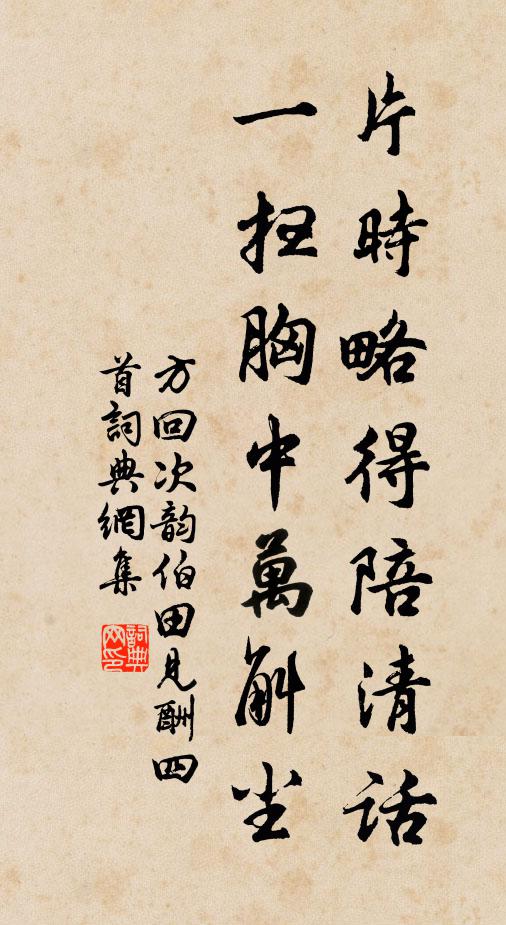 片時略得陪清話
一掃胸中萬斛尘
方回次韵伯田見酬四
首詞典網集
詞典网印